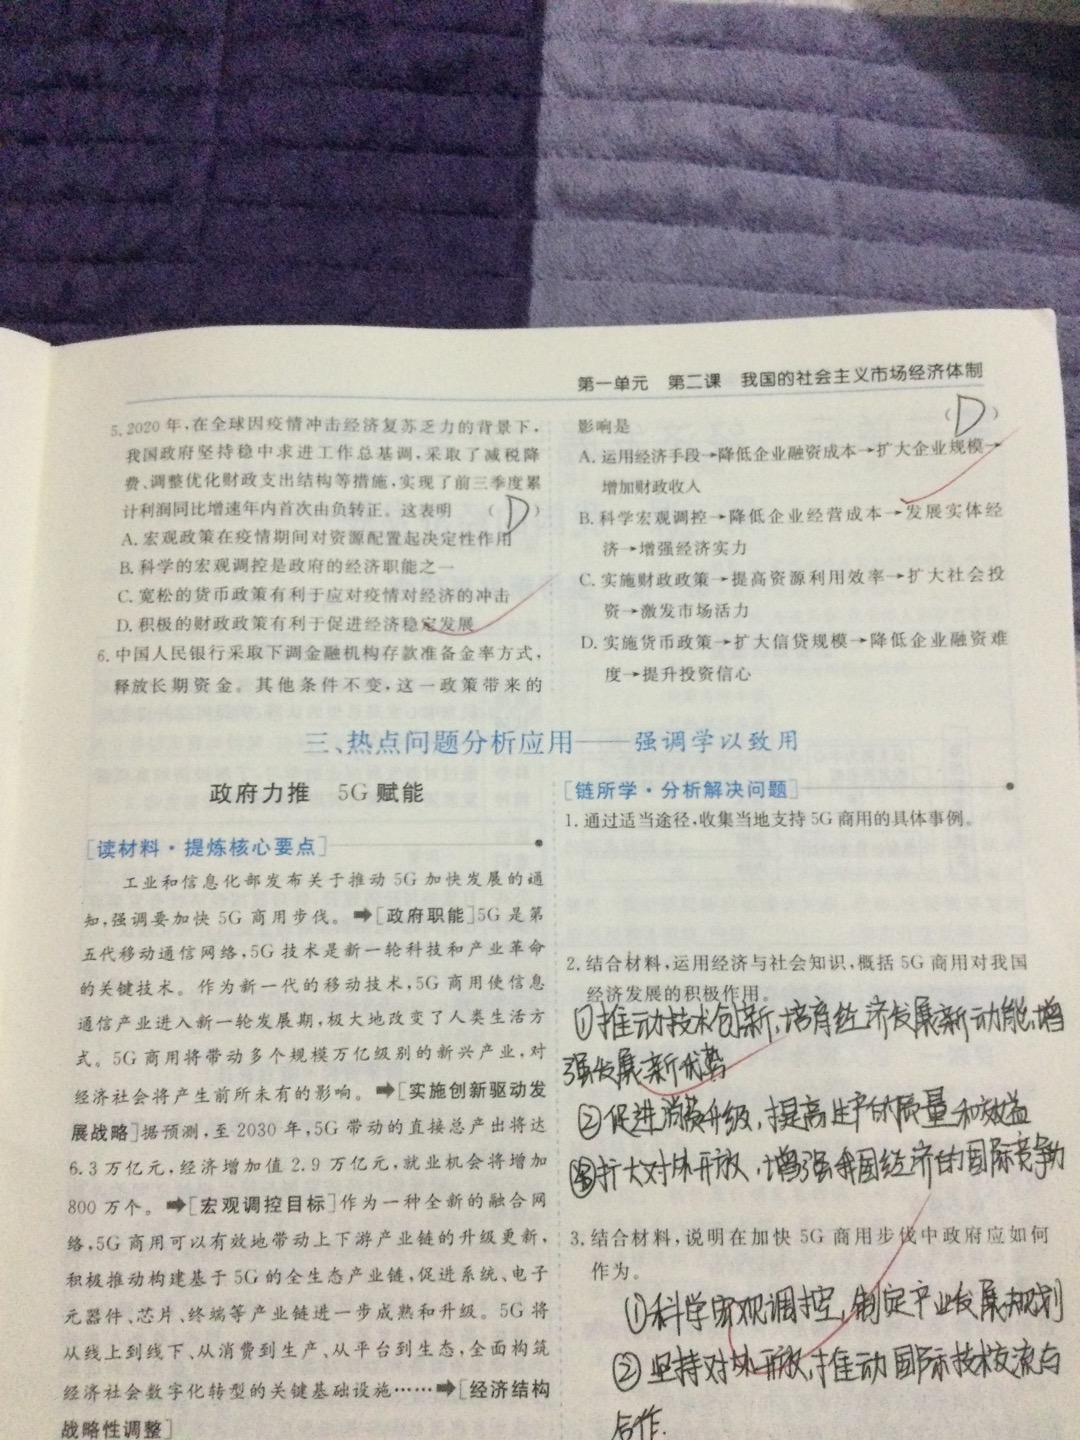 第一单元 第二课 我国的社会主义市场经济体制
5.2020年,在全球因疫情冲击经济复苏乏力的背景下,
我国政府坚持稳中求进工作总基调,采取了减税降
费、调整优化财政支出结构等措施,实现了前三季度累
计利润同比增速年内首次由负转正。这表明 (D)
A.宏观政策在疫情期间对资源配置起决定性作用
B.科学的宏观调控是政府的经济职能之一
C.宽松的货币政策有利于应对疫情对经济的冲击
D.积极的财政政策有利于促进经济稳定发展
6.中国人民银行采取下调金融机构存款准备金率方式,
释放长期资金。其他条件不变,这一政策带来的
影响是 (D)
A.运用经济手段→降低企业融资成本→扩大企业规模→
增加财政收入
B.科学宏观调控→降低企业经营成本→发展实体经
济→增强经济实力
C.实施财政政策→提高资源利用效率→扩大社会投
资→激发市场活力
D.实施货币政策→扩大信贷规模→降低企业融资难
度→提升投资信心
三、热点问题分析应用——强调学以致用
政府力推 5G赋能
[读材料·提炼核心要点]
工业和信息化部发布关于推动5G加快发展的通
知,强调要加快5G商用步伐。➡[政府职能]5G是第
五代移动通信网络,5G技术是新一轮科技和产业革命
的关键技术。作为新一代的移动技术,5G商用使信息
通信产业进入新一轮发展期,极大地改变了人类生活方
式。5G商用将带动多个规模万亿级别的新兴产业,对
经济社会将产生前所未有的影响。➡[实施创新驱动发
展战略]据预测,至2030年,5G带动的直接总产出将达
6.3万亿元,经济增加值2.9万亿元,就业机会将增加
800万个。➡[宏观调控目标]作为一种全新的融合网
络,5G商用可以有效地带动上下游产业链的升级更新,
积极推动构建基于5G的全生态产业链,促进系统、电子
元器件、芯片、终端等产业链进一步成熟和升级。5G将
从线上到线下、从消费到生产、从平台到生态,全面构筑
经济社会数字化转型的关键基础设施……➡[经济结构
战略性调整]
[链所学·分析解决问题]
1.通过适当途径,收集当地支持5G商用的具体事例。
2.结合材料,运用经济与社会知识,概括5G商用对我国
经济发展的积极作用。
①推动技术创新,培育经济发展新动能,增
强发展新优势
②促进消费升级,提高生产的质量和效益
④扩大对外开放,增强我国经济的国际竞争力
3.结合材料,说明在加快5G商用步伐中政府应如何
作为。
①科学宏观调控,制定产业发展规划
②坚持对外开放,推动国际技术交流与
合作.